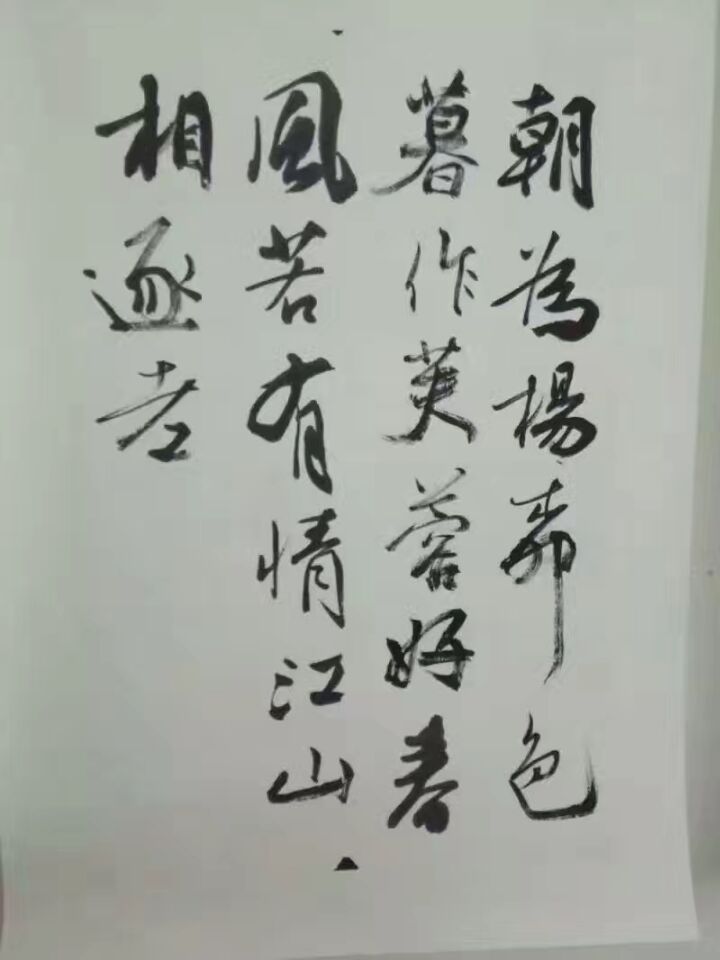 朝為楊柳色
暮作芙蓉好春
風若有情江山
相逐老